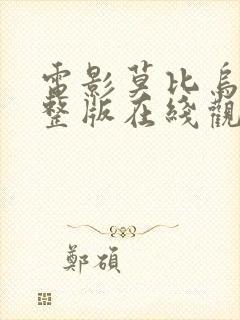 電影莫比烏
整版在綫觀
鄭碩